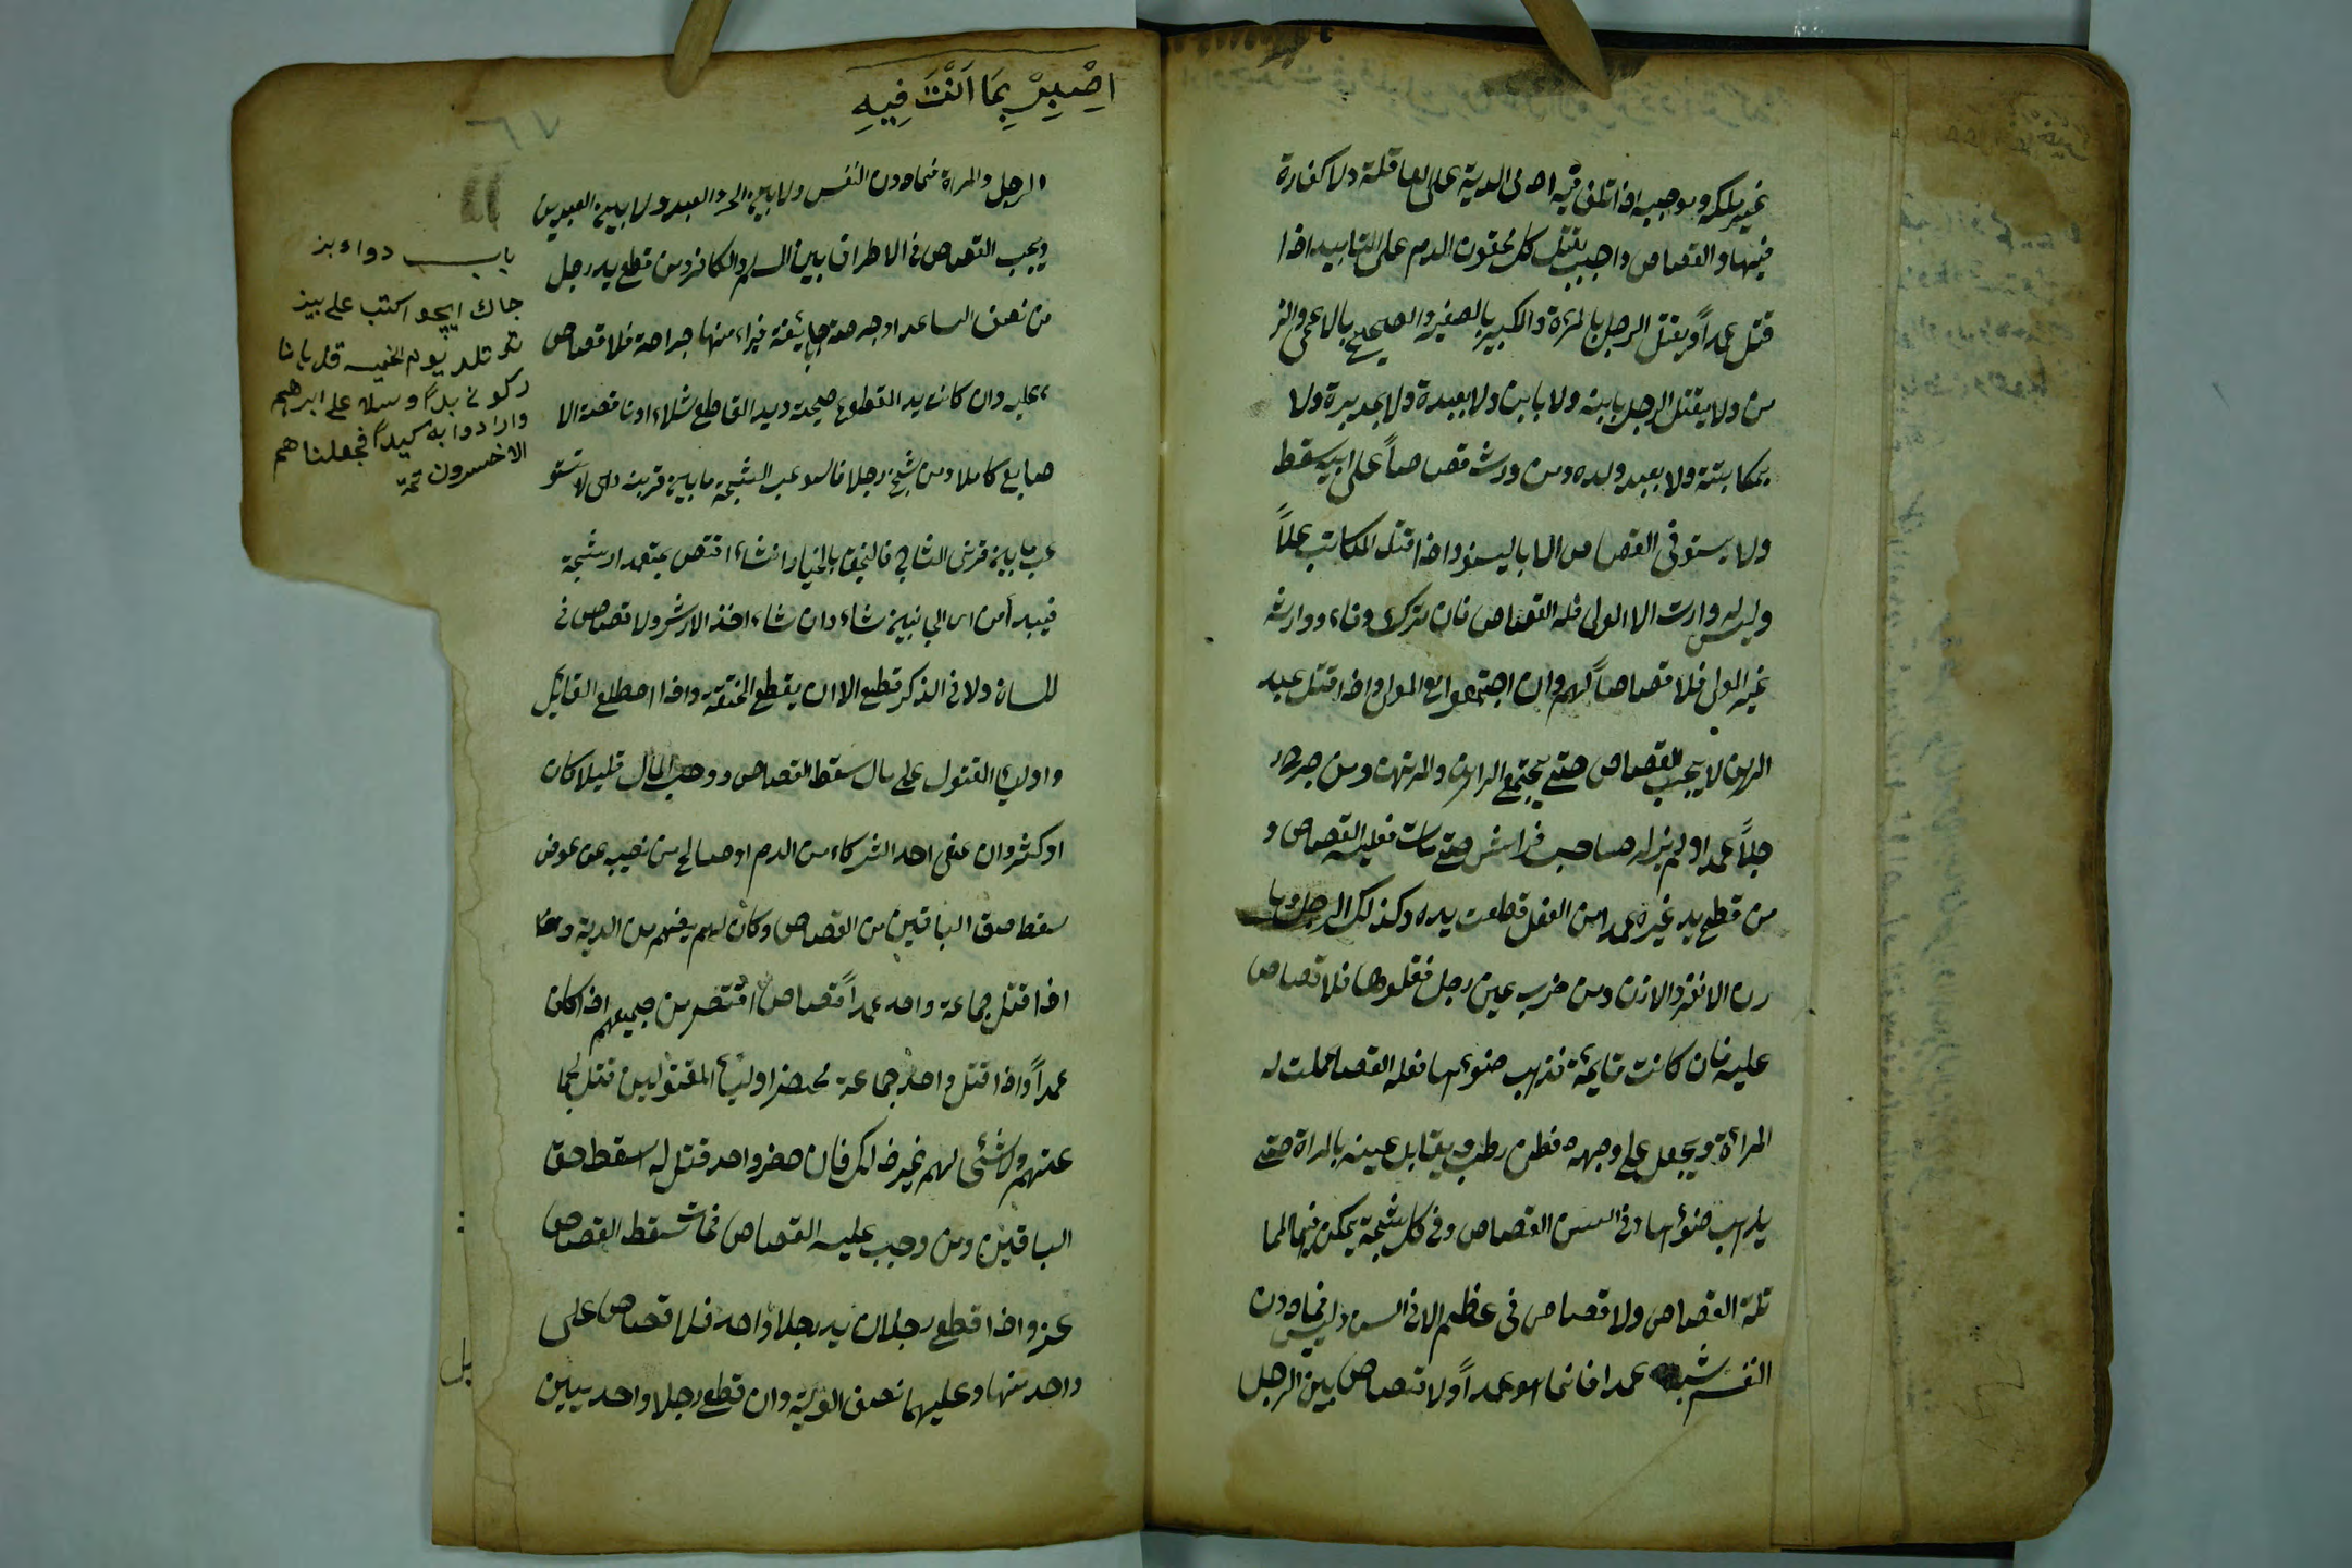 غير ملكه وموجبه اذا تلف فيه ادمى الدية على العاقلة ولا كفارة
فيها والقصاص واجب بقتل كل محقون الدم على التابيد اذا
قتل عمداً ويقتل الرجل بالمرءة والكبير بالصغير والصحيح بالاعمى والز
من ولا يقتل الرجل بابنه ولا بابن ولا بعبده ولا بمدبره ولا
بمكابتته ولا بعبد ولده ومن ورث قصاصاً على ابيه سقط
ولا يستوفى القصاص الا بالسيف واذا قتل المكاتب عمداً
وليس له وارث الا المولى فله القصاص فان ترك وفاء ووارثه
غير المولى فلا قصاصاً لهم وان اجتمعوا مع المولى واذا قتل عبد
الرهن لا يجب القصاص حتى يجتمع الراهن والمرتهن ومن جرح ر
جلاً عمدا ولم يزل صاحب فراش حتى مات فعليه القصاص و
من قطع يد غيره عمدا من المفصل قطعت يده وكذلك الرجل وما
رن الانف والاذن ومن ضرب عين رجل فقلعها فلا قصاص
عليه فان كانت قايمة فذهب ضوءها فعله القصاص حملت له
المراءة ويجعل على وجهه قطن رطب ويقابل عينه بالمراة حتى
يذهب ضوءها وفى السن القصاص وفى كل شجة يمكن فيها المما
ثلة القصاص ولا قصاص فى عظم الا فى السن وليس فيما دون
النفس شبه عمد انما هو عمداً ولا قصاص بين الرجل
اِصْبِرْ بِمَا اَنْتَ فِيهِ
الرجل والمراة فيما دون النفس ولا بين الحر والعبد ولا بين العبدين
ويجب القصاص فى الاطراف بين المسلم والكافر ومن قطع يد رجل
من نصف الساعد او جرحه جايفة فبراء منها جراحة فلا قصاص
عليه وان كانت يد المقطوع صحيحة ويد القاطع شلاء او ناقصة الا
صابع كاملا ومن شج رجلا فاستوعب الشجة ما بين قرنيه وهى لا تستو
عب ما بين قرنى الشاج فالمشجوج بالخيار ان شاء اقتص بمقدار شجة
فيبدأ من اى الجانبين شاء وان شاء اخذ الارش ولا قصاص فى
للسان ولا فى الذكر قطع الا ان يقطع الحشفة واذا اصطلح القاتل
واولياء المقتول على مال سقط القصاص ووجب المال قليلا كان
او كثير وان عفى احد الشركاء من الدم او صالح من نصيبه عن عوض
سقط حق الباقين من القصاص وكان لهم نصيبهم من الدية واذا
اذا قتل جماعة واحد عمداً قصاص اقتص من جميعهم اذا كان
عمداً واذا قتل واحد جماعة محضر اولياء المقتولين قتل لجما
عتهم ولا شئى لهم غير ذلك فان حضر واحد قتل له سقط حق
الباقين ومن وجب عليه القصاص فمات سقط القصاص
عنه واذا قطع رجلان يد رجلا واحد فلا قصاص على
واحد منها وعليهما نصف الدية وان قطع رجلا واحد يمين
باب دواء بز
جاك ايچو اكتب على بيز
يوم الخميس قل يا نا
ركونى بردًا وسلا على ابرهيم
وارادوا به كيداً فجعلناهم
الاخسرون تمة